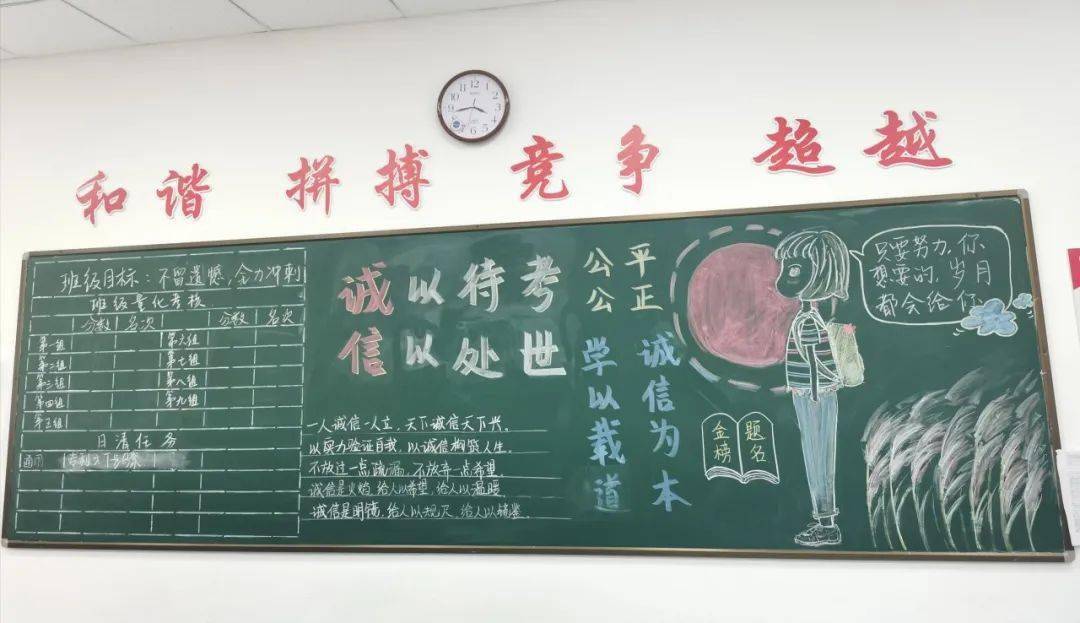 和谐 拼搏 竞争 超越
班级目标:不留遗憾,全力冲刺
班级量化考核
分数 名次 分数 名次
第一组 第六组
第二组 第七组
第三组 第八组
第四组 第九组
第五组
日清任务
诚信
以以
待处
考世
一人诚信一人立,天下诚信天下兴。
以实力验证自我,以诚信构筑人生。
不放过一点疏漏,不放弃一点希望。
诚信是火焰,给人以希望,给人以温暖
诚信是明镜,给人以规尺,给人以镜鉴。
公平
公正
学以载道
诚信为本
金榜
题名
只要努力,你
想要的,岁月
都会给你